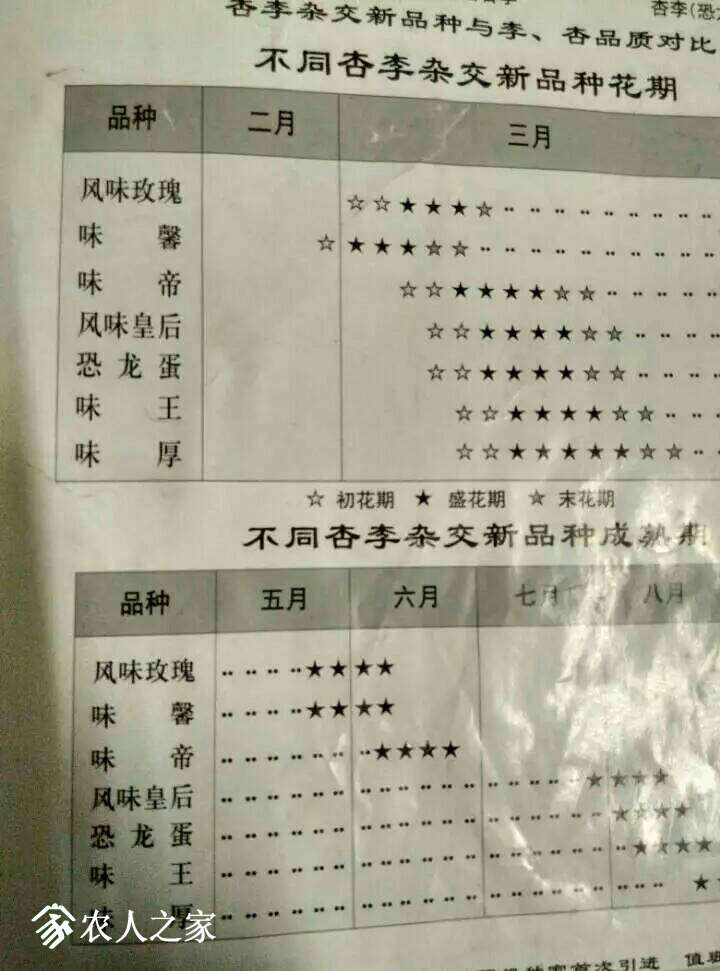 杏李杂交新品种与李、杏品质对比
杏李(恐
不同杏李杂交新品种花期
品种 二月 三月
风味玫瑰 ☆☆★★★✮
味馨 ☆★★★✮✮
味帝 ☆☆★★★★✮✮
风味皇后 ☆☆★★★★✮✮
恐龙蛋 ☆☆★★★★✮✮
味王 ☆☆★★★★✮✮
味厚 ☆☆★★★★★✮✮
☆ 初花期 ★ 盛花期 ✮ 末花期
不同杏李杂交新品种成熟期
品种 五月 六月 七月 八月
风味玫瑰 ★★★★
味馨 ★★★★
味帝 ★★★★
风味皇后 ★★★★
恐龙蛋 ★★★★
味王 ★★★★
味厚 ★
农人之家
首次引进